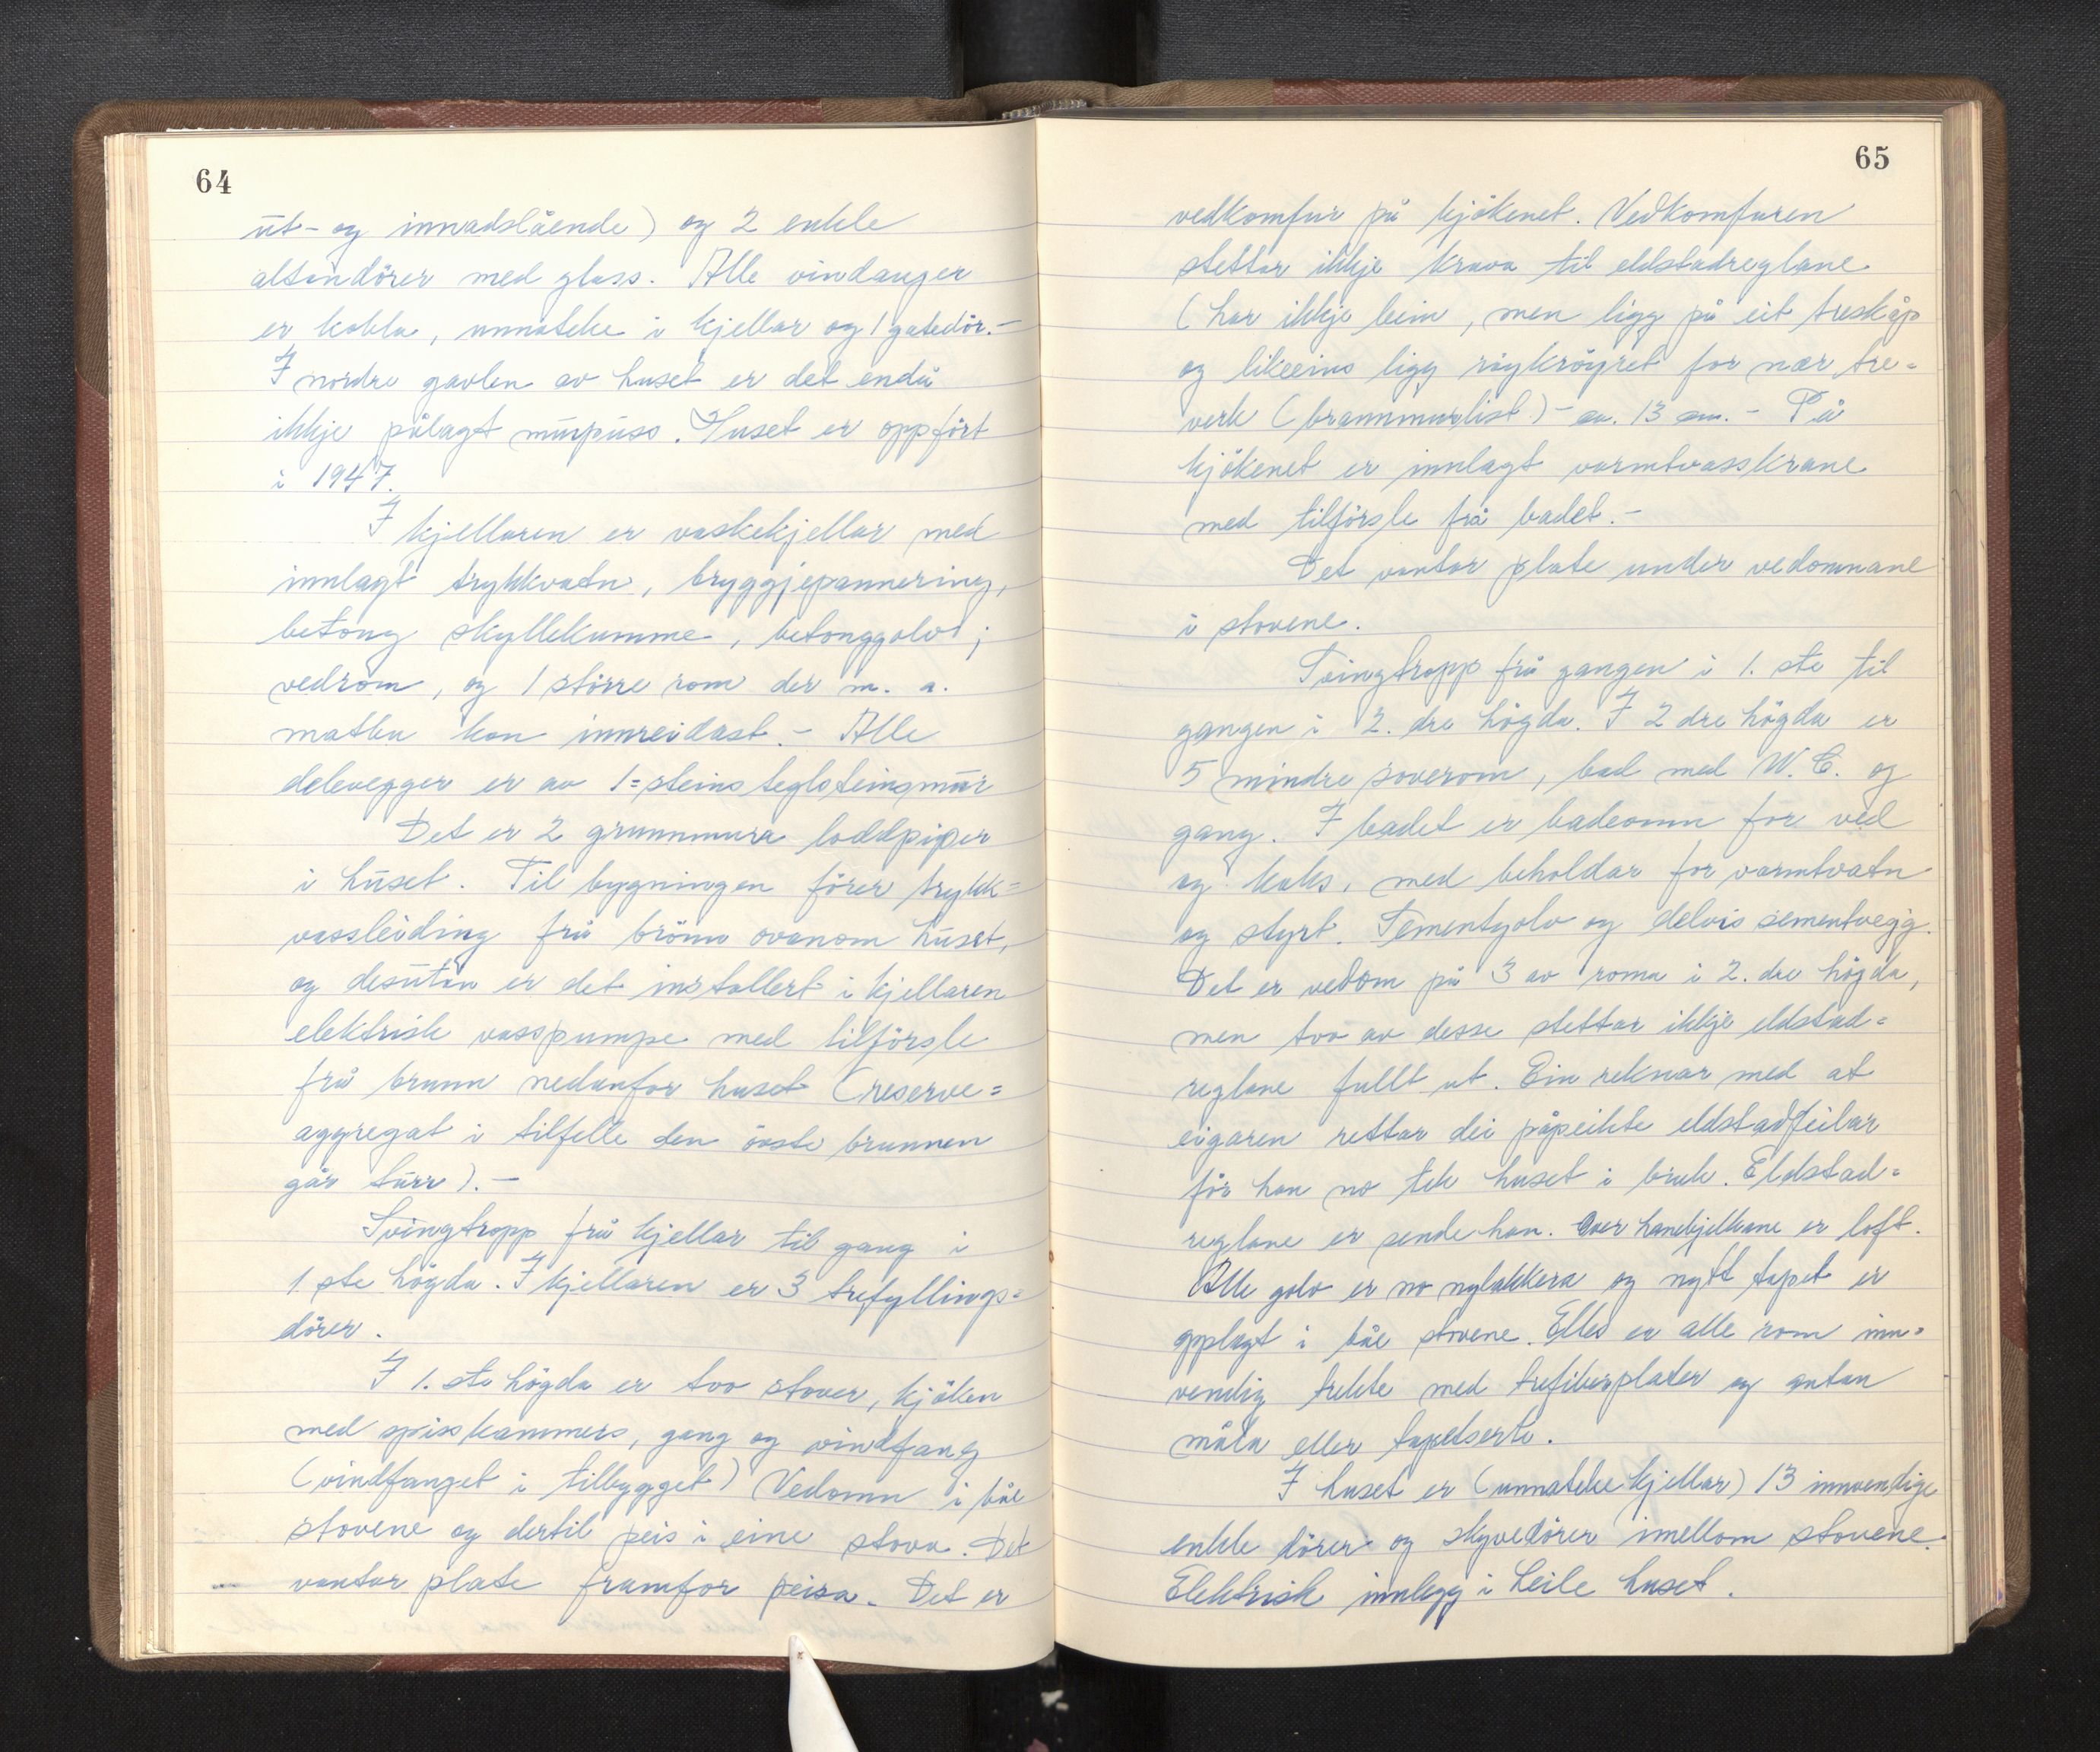 64
ut- og innadslåande) og 2 enkle
altandörer med glass. Alle vindauger
er kobla, unnateke i kjellar og 1 gatedör.-
I nordre gavlen av huset er det endå
ikkje pålagt murpuss. Huset er oppfört
i 1947.
I kjellaren er vaskekjellar med
innlagt trykkvatn, bryggjepannering,
betong skyllekumme, betonggolv;
vedrom, og 1 större rom der m. a.
matbu kan innreidast.- Alle
delevegger er av 1=steins teglsteinsmur
Det er 2 grunnmura loddpiper
i huset. Til bygningen förer trykk=
vassleiding frå brönn ovanom huset,
og desutan er det installert i kjellaren
elektrisk vasspumpe med tilförsle
frå brunn nedanfor huset (reserve=
aggregat i tilfelle den övste brunnen
går turr).-
Svingtropp frå kjellar til gang i
1.ste högda. I kjellaren er 3 trefyllings=
dörer.
I 1.ste högda er tvo stover, kjöken
med spisskammers, gang og vindfang
(vindfanget i tilbygget) Vedomn i båe
stovene og dertil peis i eine stova. Det
vantar plate framfor peisa. Det er
65
vedkomfur på kjökenet. Vedkomfuren
stettar ikkje krava til eldstadreglane
(har ikkje bein, men ligg på eit treskåp
og likeeins ligg röykröyret for nær tre=
verk (brannmurlist)- ca. 13 cm.- På
kjökenet er innlagt varmtvasskrane
med tilförsle frå badet.-
Det vantar plate under vedomnane
i stovene.
Svingtropp frå gangen i 1. ste til
gangen i 2. dre högda. I 2 dre högda er
5 mindre soverom, bad med W.C. og
gang. I badet er badeomn for ved
og koks, med beholdar for varmtvatn
og styrt. Sementgolv og delvis sementvegg.
Det er vedomn på 3 av roma i 2. dre högda,
men tvo av desse stettar ikkje eldstad=
reglane fullt ut. Ein reknar med at
eigaren rettar dei påpeikte eldstadfeilar
för han no tek huset i bruk. Eldstad=
reglane er sende han. Over hanebjelkane er loft.
Alle golv er no nylakkera og nytt tapet er
opplagt i båe stovene. Elles er alle rom inn=
vendig trekte med trefiberplater og antan
måla eller tapetserte.
I huset er (unnateke kjellar) 13 innvendige
enkle dörer og skyvedörer imellom stovene.
Elektrisk innlegg i heile huset.